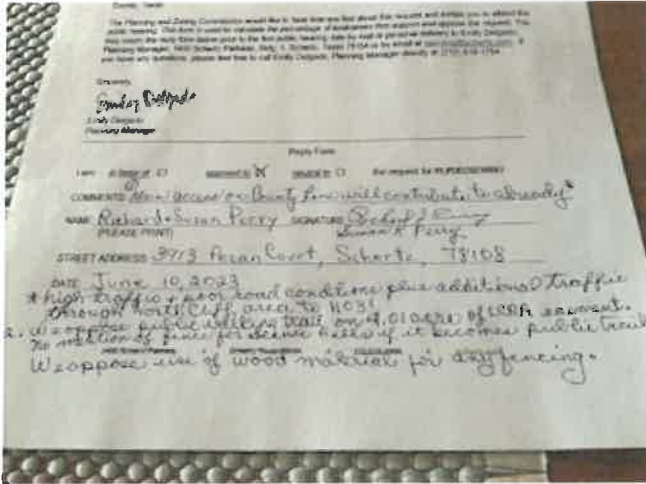 The Planning and Zoning Commission would like to hear how you feel about this request and invites you to attend the
public hearing. This form is used to calculate the percentage of landowners that support and oppose the request. You
may return the reply form below prior to the first public hearing date by mail or personal delivery to Emily Delgado,
Planning Manager, 1400 Schertz Parkway, Bldg. 1, Schertz, Texas 78154 or by email at
you have any questions, please feel free to call Emily Delgado, Planning Manager directly at
Sincerely,
Emily Delgado
Emily Delgado
Planning Manager
Reply Form
I am: in favor of □ opposed to ☒ neutral to □ the request for
COMMENTS: Main access on County Line will contribute to already*
NAME: Richard & Susan Perry SIGNATURE
(PLEASE PRINT) Susan K Perry
STREET ADDRESS: 3913 Pecan Court, Schertz, 78108
DATE: June 10, 2023
* high traffic & poor road conditions plus additional traffic
through North Cliff area to 1103!
2. We oppose public walking trail on of easement.
No mention of fence for Scenic Hills if it becomes public trail
We oppose use of wood material for any fencing.